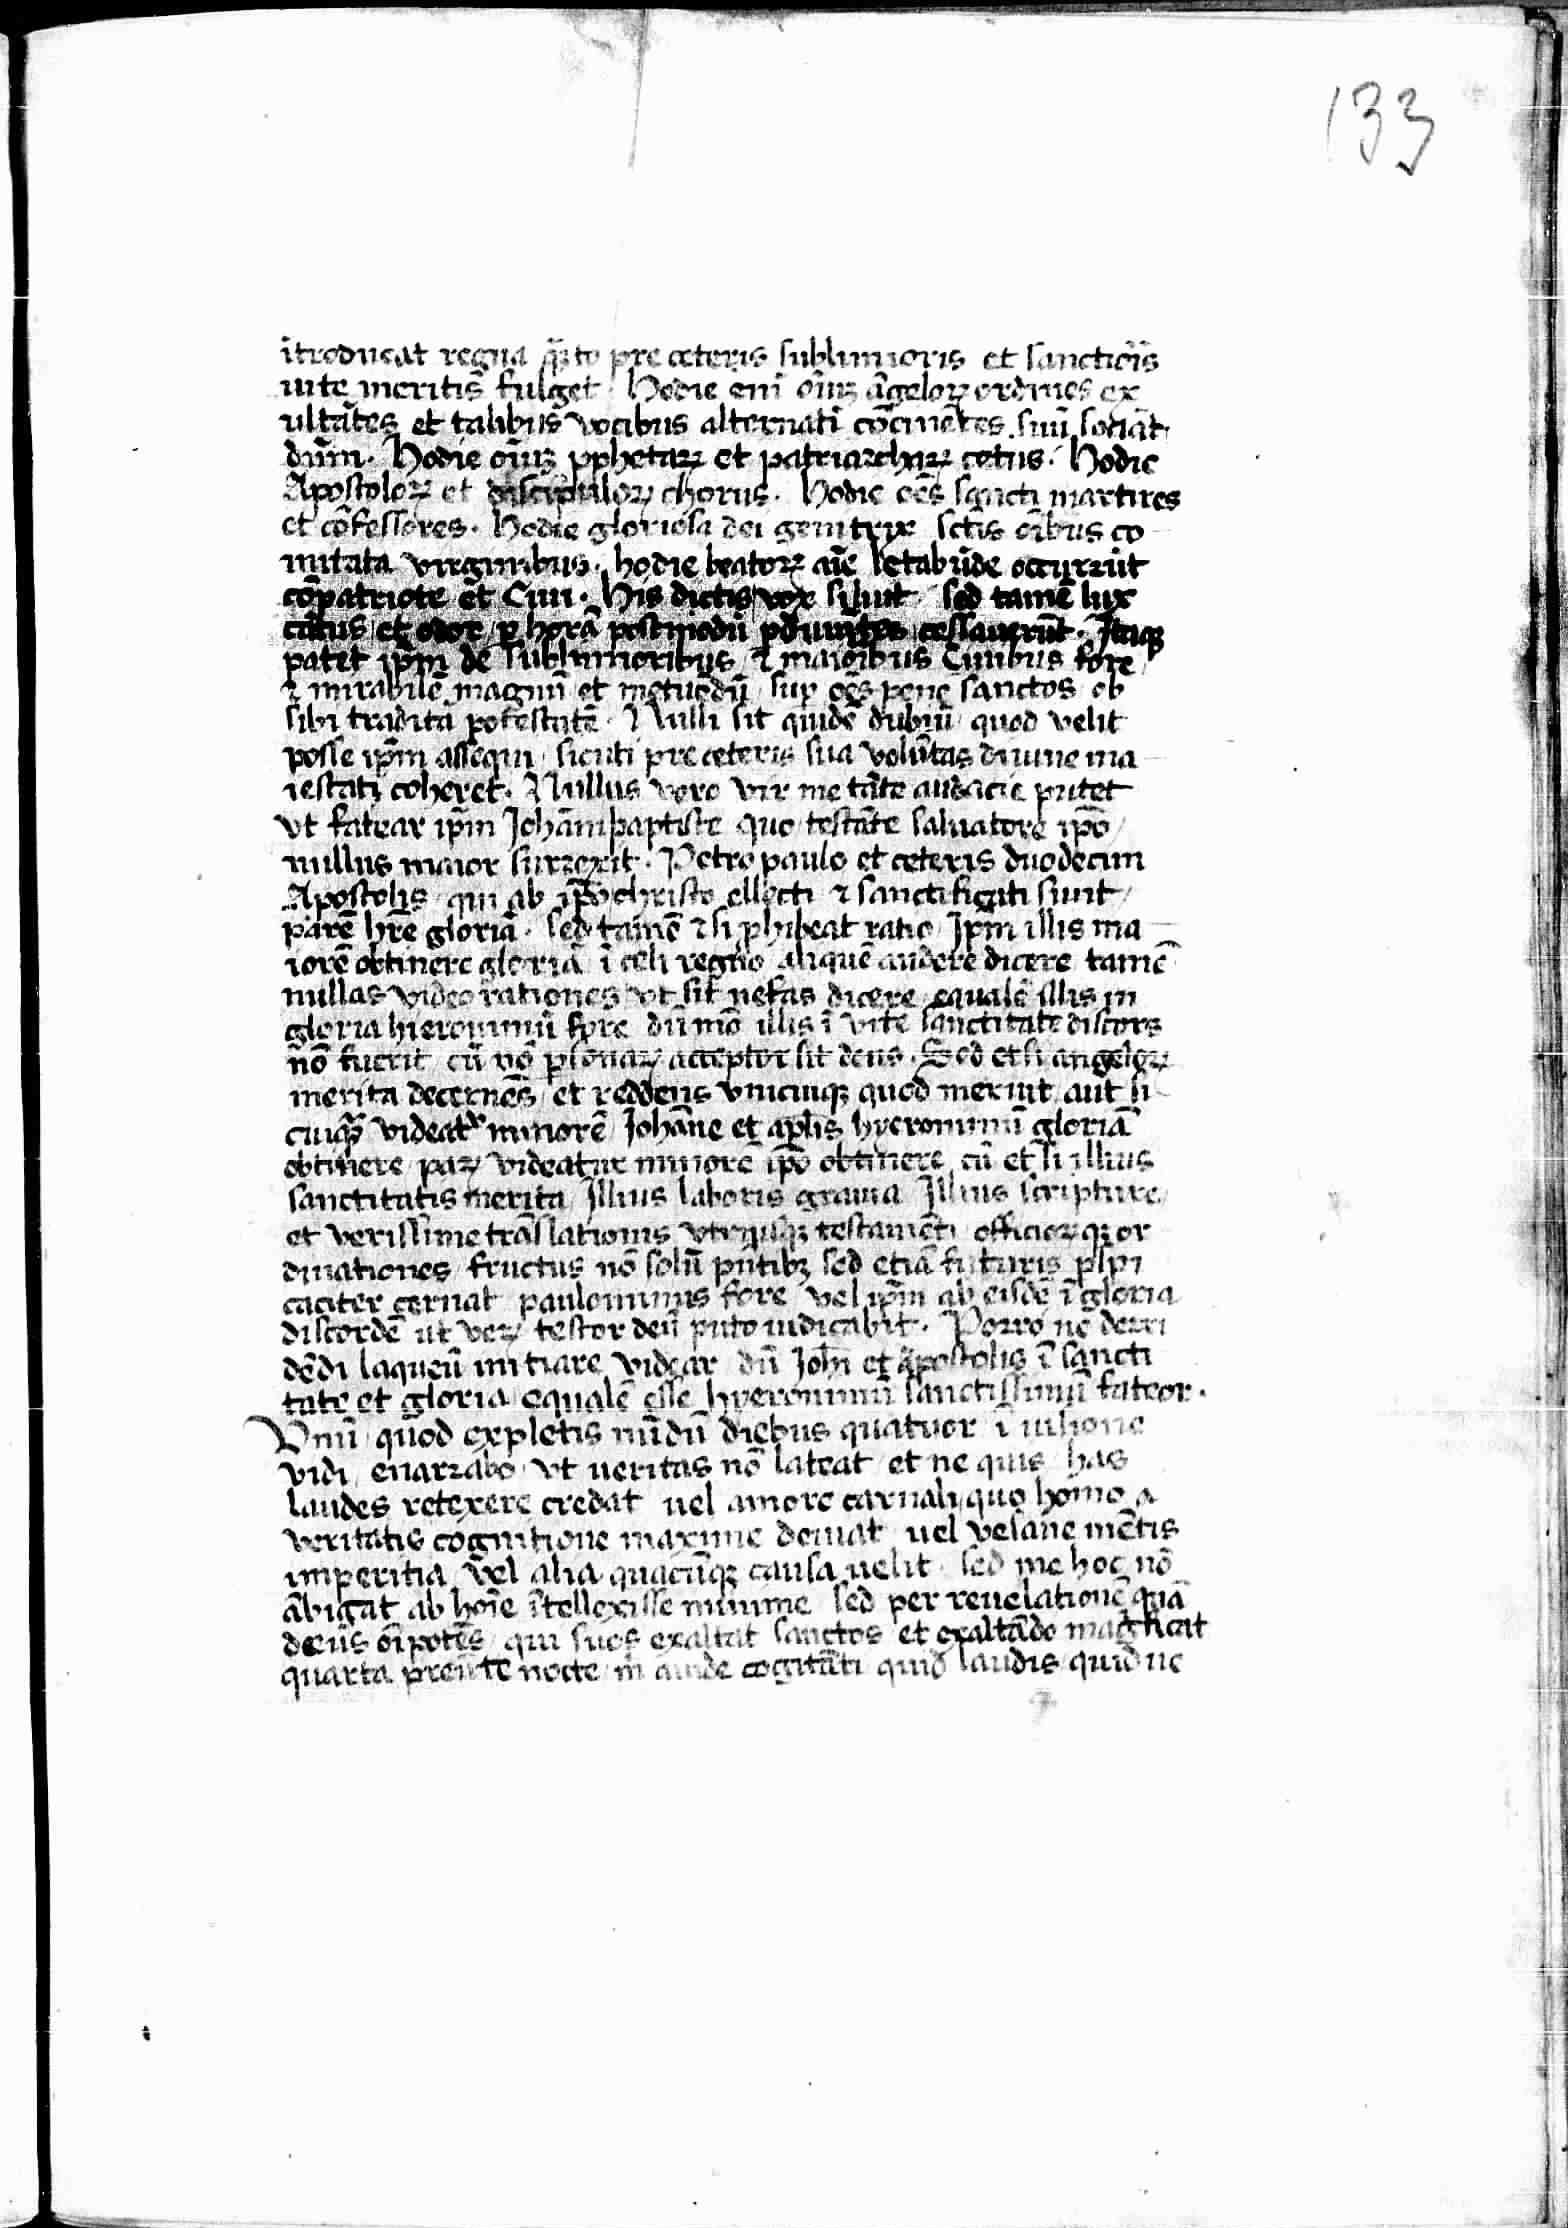 133
ītroducat regna q̄ȝto pre ceteris sublimioris et sanctiōis
uite meritis fulget. Hodie enī oīuȝ āgeloꝝ ordines ex
ultātes et talibus vocibus alternatī cōcinētes suū sotiāt
dūm. Hodie oīuȝ ꝓphetaꝝ et patriarchaꝝ cetus. Hodie
Apostoloꝝ et discipuloꝝ chorus. Hodie oēs sancti martires
et cōfessores. Hodie gloriosa dei genitrix sctīs oībus co
mitata virginibus. hodie beatoꝝ aīe letabūde occurrūt
cōpatriote et Ciui. His dictis vox siluit sed tamē lux
cātus et odor ꝑ horā postmodū ꝑdurātes cessauerūt. Itaqȝ
patet ip̄m de sublimioribus ⁊ maioribus Ciuibus fore
⁊ mirabilē magnū et metuēdū suꝑ oēs pene sanctos ob
sibi traditā potestatē. Nulli sit quidē dubiū quod velit
posse ip̄m assequi sicuti pre ceteris sua volūtas diuine ma
iestati coheret. Nullus vero vir me tāte audacie putet
vt fatear ip̄m Johānī baptiste quo testāte saluatore ip̄o
nullus maior surrexit. Petro paulo et ceteris duodecim
Apostolis qui ab ip̄o christo ellecti ⁊ sanctificati sunt
parē hr̄e gloriā. sed tamē ⁊ si ꝓhibeat ratio Ip̄m illis ma
iorē obtinere gloriā ī celi regno aliquē audere dicere tamē
nullas video rationes vt sit nefas dicere equalē illis in
gloria hieronimū fore dū mō illis ī vite sanctitate discors
nō fuerit cū nō ꝑsonaꝝ acceptor sit deus. Sed et si angeloꝝ
merita decernēs et reddens vnicuiqȝ quod meruit aut si
cuiqȝ videat᷑ minorē Johāne et ap̄lis hyeronimū gloriā
obtinere paꝝ videatur minorē ip̄o obtinere cū et si illius
sanctitatis merita Illius laboris grauia Illius scripture
et verissime trāslationis vtriusqȝ testamēti officioꝝqȝ or
dinationes fructus nō solū pn̄tibȝ sed etiā futuris ꝑspi
caciter cernat paulominus fore vel ip̄m ab eisdē ī gloria
discordē ut veꝝ testor deū puto iudicabit. Porro ne derri
dēdi laqueū initiare videar dū Joh̄i et apostolis ī sancti
tate et gloria equalē esse hyeronimū sanctissimū fateor.
Vnū quod expletis nūdū diebus quatuor ī uisione
vidi enarrabo vt ueritas nō lateat et ne quis has
laudes retexere credat uel amore carnali quo homo a
veritatis cognitione maxime deuiat uel vesane mētis
imperitia vel alia quacūqȝ causa uelit sed me hoc nō
ābigat ab hoīe ītellexisse minime sed per reuelationē quā
deus oīpotēs qui suos exaltat sanctos et exaltādo magnificat
quarta preūte nocte m̄ auide cogitāti quid laudis quid ue